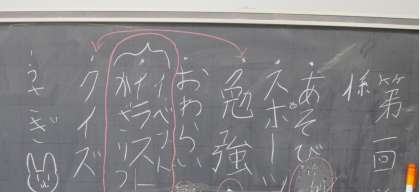 第一回
係
・あそび
・スポーツ
・勉強
・おわらい
・イベント
・イラスト
・クイズ
・うさぎ